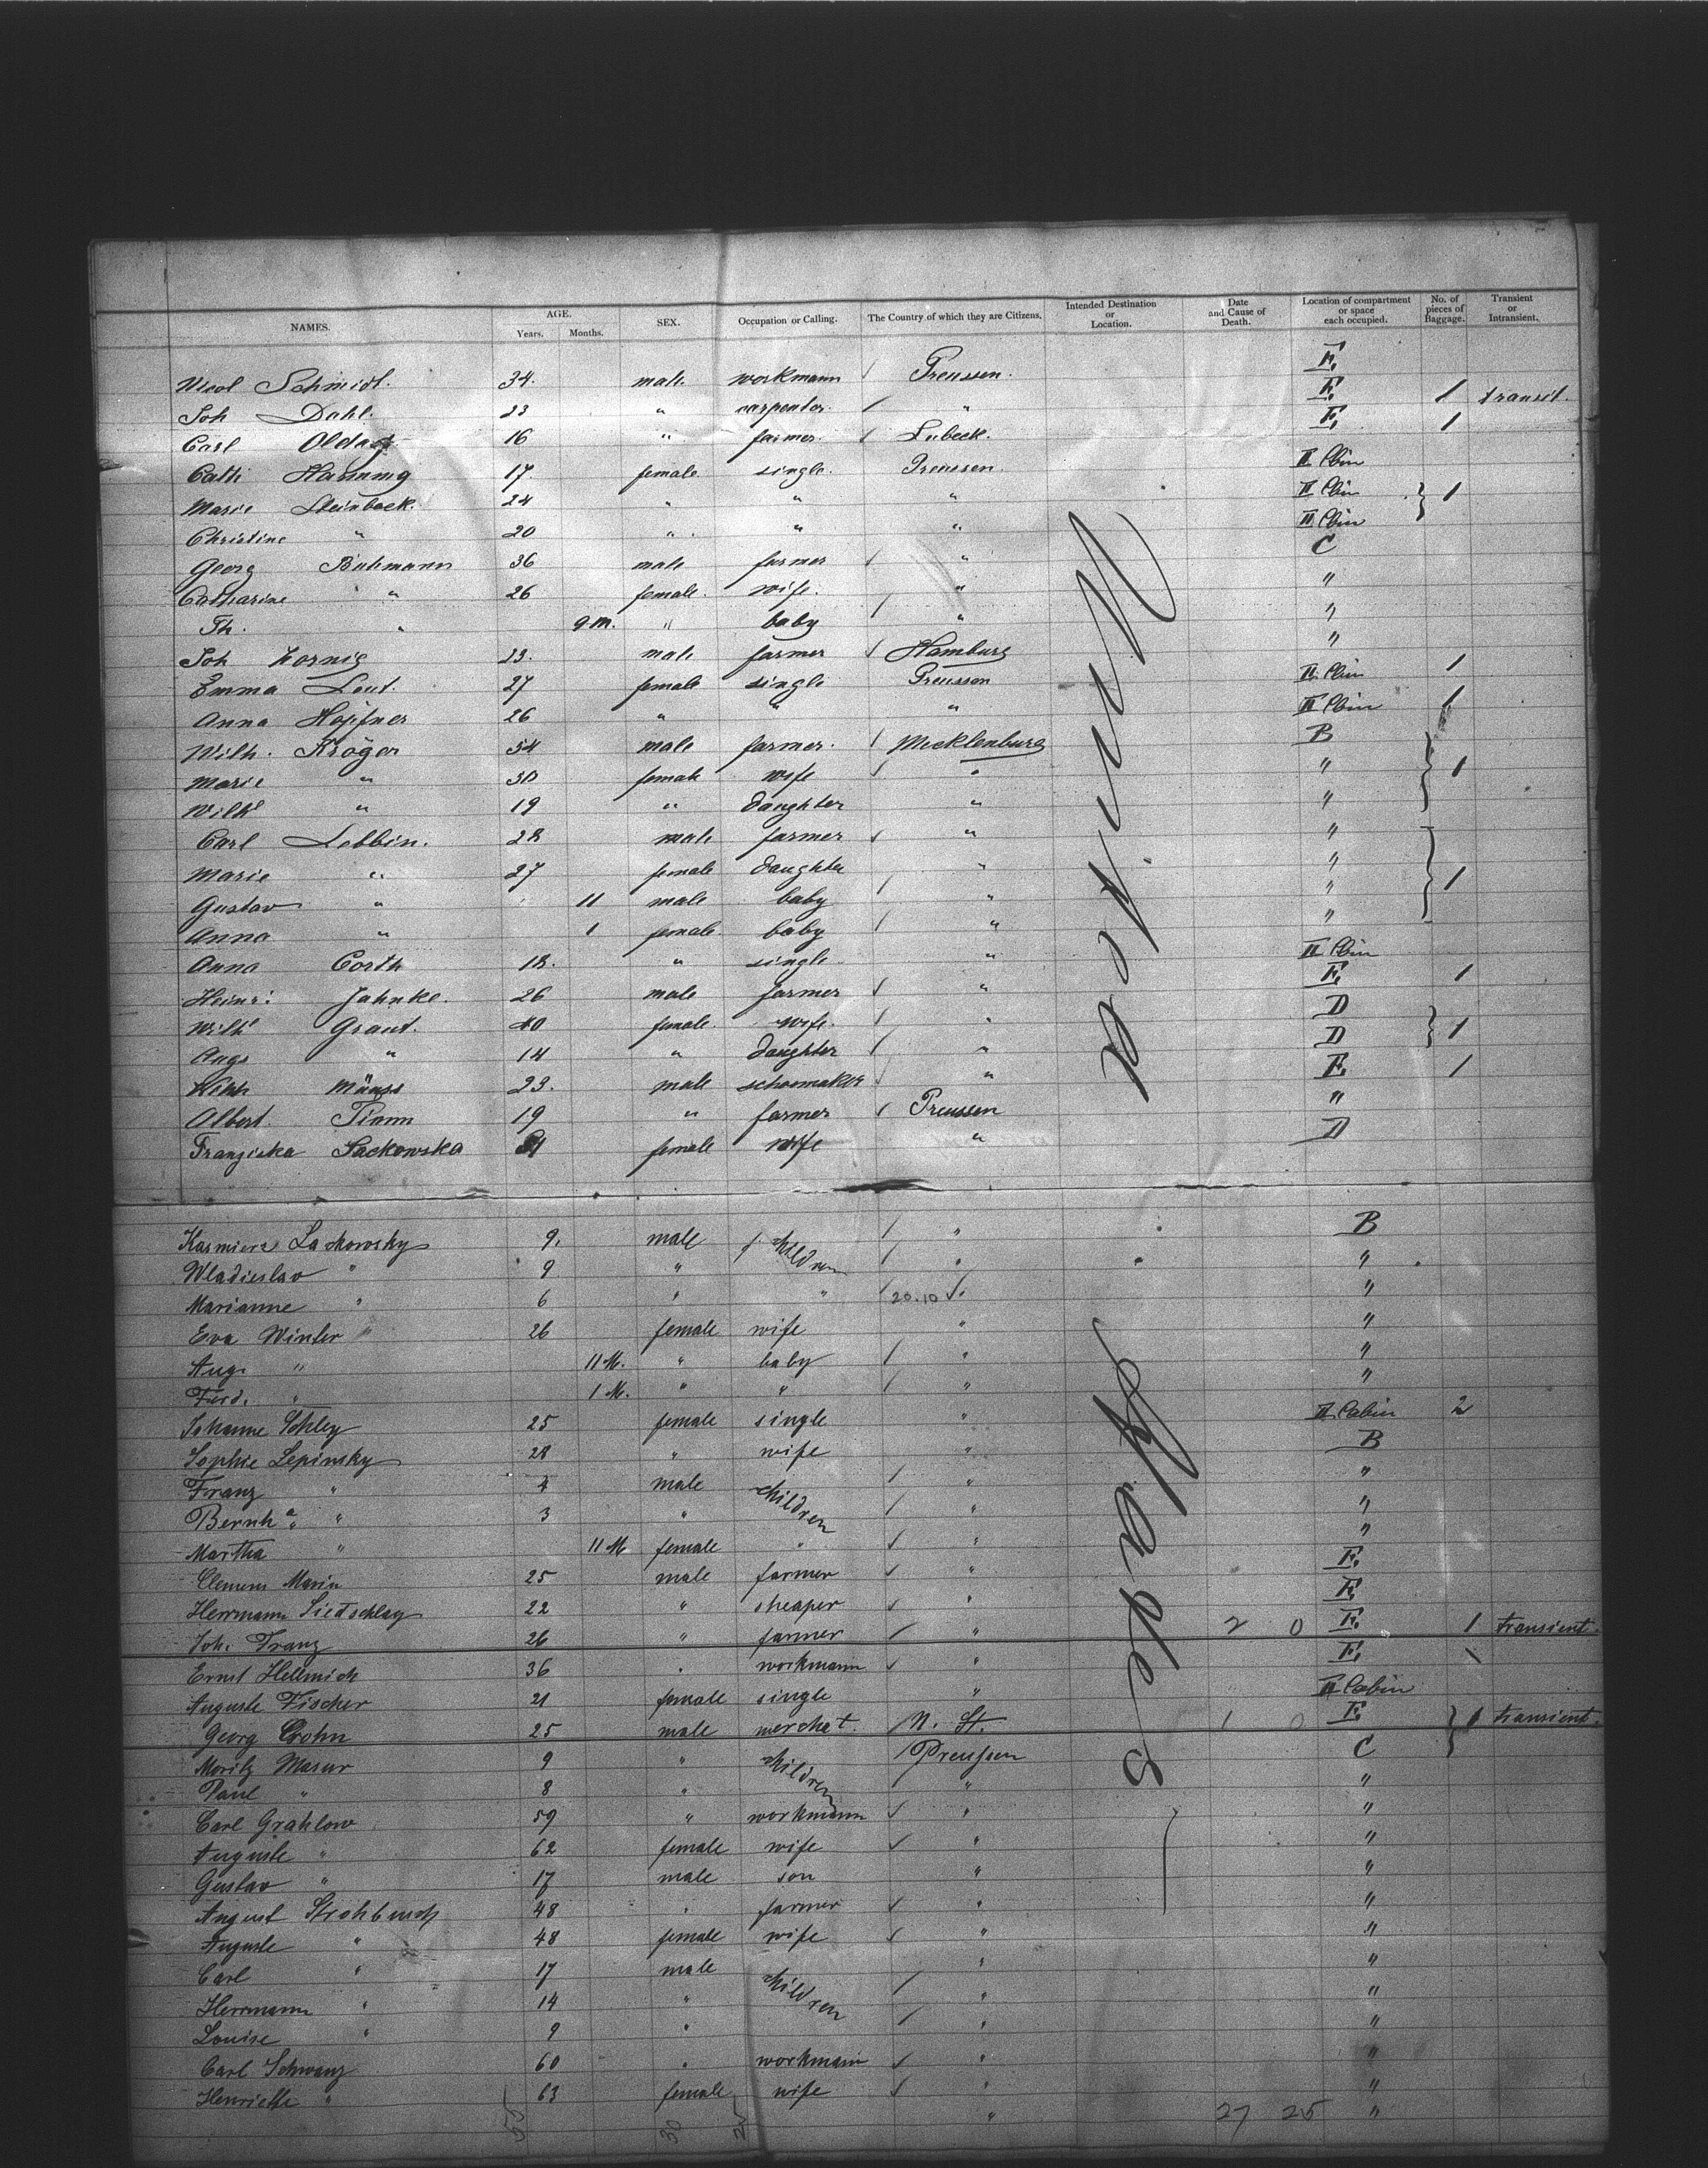 NAMES. AGE. Years. Months. SEX. Occupation or Calling. The Country of which they are Citizens. Intended Destination or Location. Date and Cause of Death. Location of compartment or space each occupied. No. of pieces of Baggage. Transient or Intransient.
Nicol Schmidt. 34. male workmann Preussen. E.
Joh Dahl. 23 " carpenter. " E. 1 transit.
Carl 16 " farmer. Lubeck. E. 1
Cathi 17. female single. Preussen II Cbin
Marie Steinbeck. 24 " " " II Cbin 1
Christine " 20 " " " II Cbin
Georg Buhmann 36 male farmer " C
Catharine " 26 female. wife. " "
Th. " 9 m. " baby " "
Joh Hornig 23. male farmer Hamburg "
Emma Lout. 27 female single Preussen II. Cbin 1
Anna Höpfner 26 " " " II Cbin 1
Wilh. Kröger 54 male farmer. Mecklenburg B
Marie " 50 female wife " " 1
Wilhe " 19 " daughter " "
Carl Lobbin. 28 male farmer " "
Marie " 27 female daughter " "
Gustav " 11 male baby " " 1
Anna " 1 female baby " "
Anna Corth 18. " single " II Cbin
Heinr: Jahnke. 26 male farmer " E. 1
Wilhe Graut. 40 female. wife. " D
Augs " 14 " daughter " D 1
Mäuss 23. male schoomaker " E. 1
Albert. Tiamm 19 " farmer Preussen "
Franziska Sackowska female wife " D
Kasmiers Lackowsky 9. male children " B
Wladieslav " 9 " " "
Marianne " 6 " " 20.10 " "
Eva Winter " 26 female wife " "
Aug. " 11 M. " baby " "
Ferd. " 1 M. " " " "
Johanne Schley 25 female single " II Cabin 2
Sophie Lepinsky 28 " wife " B
Franz " 4 male children " "
Bernhd " 3 " " "
Martha " 11 M female " " "
Clemens Marin 25 male farmer " E.
Herrmann Siedschlag 22 " sheaper " E.
Joh. Franz 26 " farmer " 2 0 E. 1 transient.
Ernst Hellmich 36 " workmann " E. \
Auguste Fischer 21 female single " II Cabin
Georg Crohn 25 male merchat. N. St. 1 0 E. 1 transient.
Moritz Masur 9 " children Preussen C
Paul " 8 " " "
Carl Grahlow 59 " workmann " "
Auguste " 62 female wife " "
Gustav " 17 male son " "
August Strohbusch 48 " farmer " "
Auguste " 48 female wife " "
Carl " 17 male children " "
Herrmann " 14 " " "
Louise " 9 " " "
Carl Schwanz 60 " workmann " "
Henriette " 63 female wife " "
55 30 25 " 27 25 "